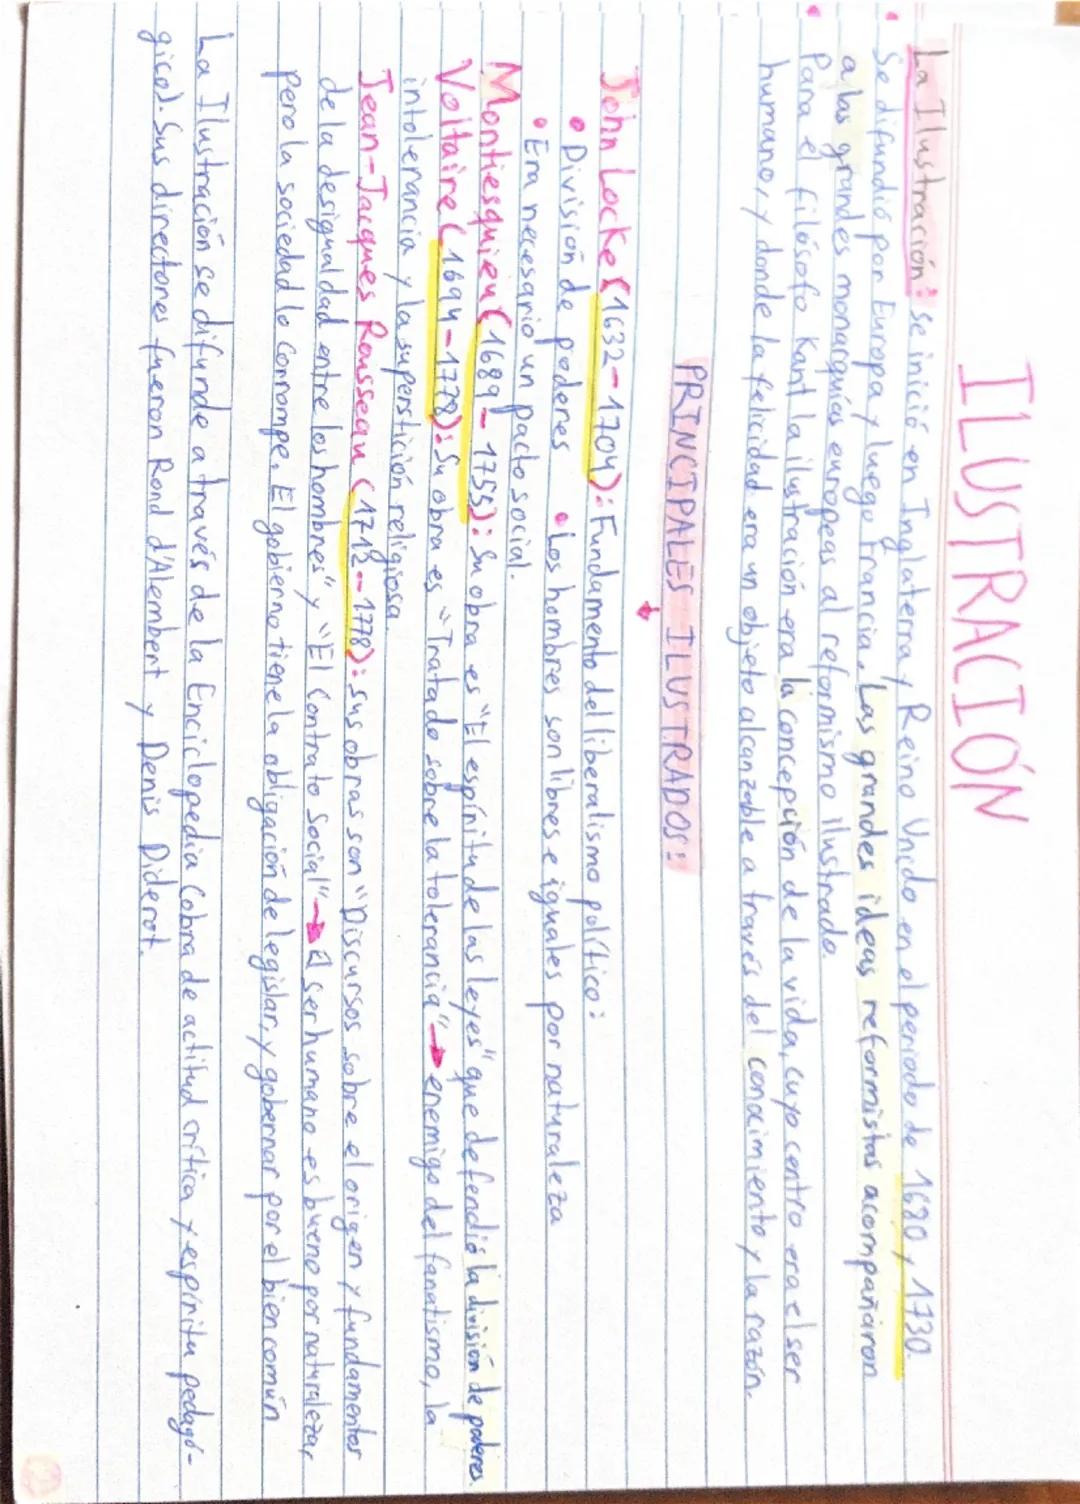 ILUSTRACIÓN
La Ilustración: se inició en Inglaterra y Reino Unido en el periodo de 1680 y 1730.
Se difundió por Europa y luego Francia. Las grandes ideas reformistas acompañaron
a las grandes monarquías europeas al reformismo ilustrado.
Para el filósofo Kant la ilustración era la concepción de la vida, cuyo centro era el ser
humano, y donde la felicidad era un objeto alcanzable a través del conocimiento y la razón.
PRINCIPALES ILUSTRADOS:
John Locke (1632-1704): Fundamento del liberalismo político:
• División de poderes • Los hombres son libres e iguales por naturaleza
• Era necesario un pacto social.
Montiesquieu (1689-1755): Su obra es "El espíritu de las leyes" que defendió la división de poderes.
Voltaire (1694-1778): Su obra es "Tratado sobre la tolerancia" → enemigo del fanatismo, la
intolerancia y la superstición religiosa.
Jean-Jacques Rousseau (1712-1778): sus obras son "Discursos sobre el origen y fundamentos
de la desigualdad entre los hombres" y "El Contrato Social" → El ser humano es bueno por naturaleza,
pero la sociedad lo corrompe. El gobierno tiene la obligación de legislar, y gobernar por el bien común
La Ilustración se difunde a través de la Enciclopedia (obra de actitud crítica y espíritu pedagó-
gico). Sus directores fueron Rond d'Alembert y Denis Diderot.